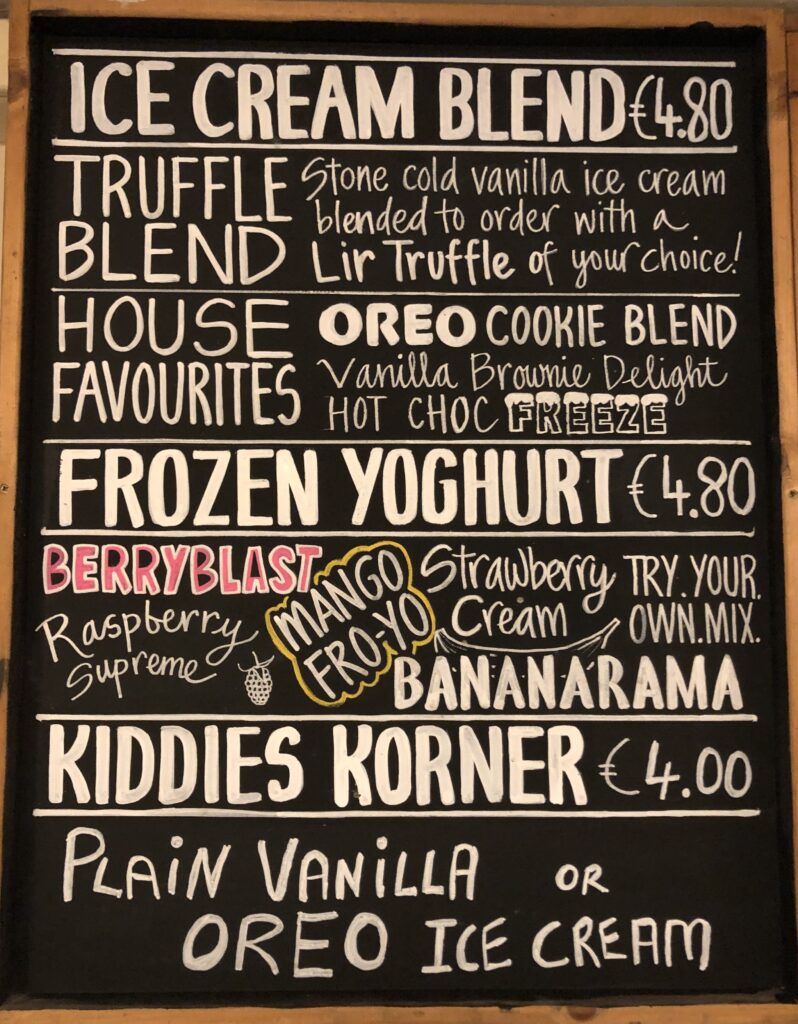 ICE CREAM BLEND €4.80
TRUFFLE BLEND
Stone cold vanilla ice cream
blended to order with a
Lir Truffle of your choice!
HOUSE FAVOURITES
OREO COOKIE BLEND
Vanilla Brownie Delight
HOT CHOC FREEZE
FROZEN YOGHURT €4.80
BERRYBLAST
Raspberry
Supreme
MANGO
FRO-YO
Strawberry
Cream
TRY.YOUR.
OWN.MIX.
BANANARAMA
KIDDIES KORNER €4.00
PLAIN VANILLA OR
OREO ICE CREAM